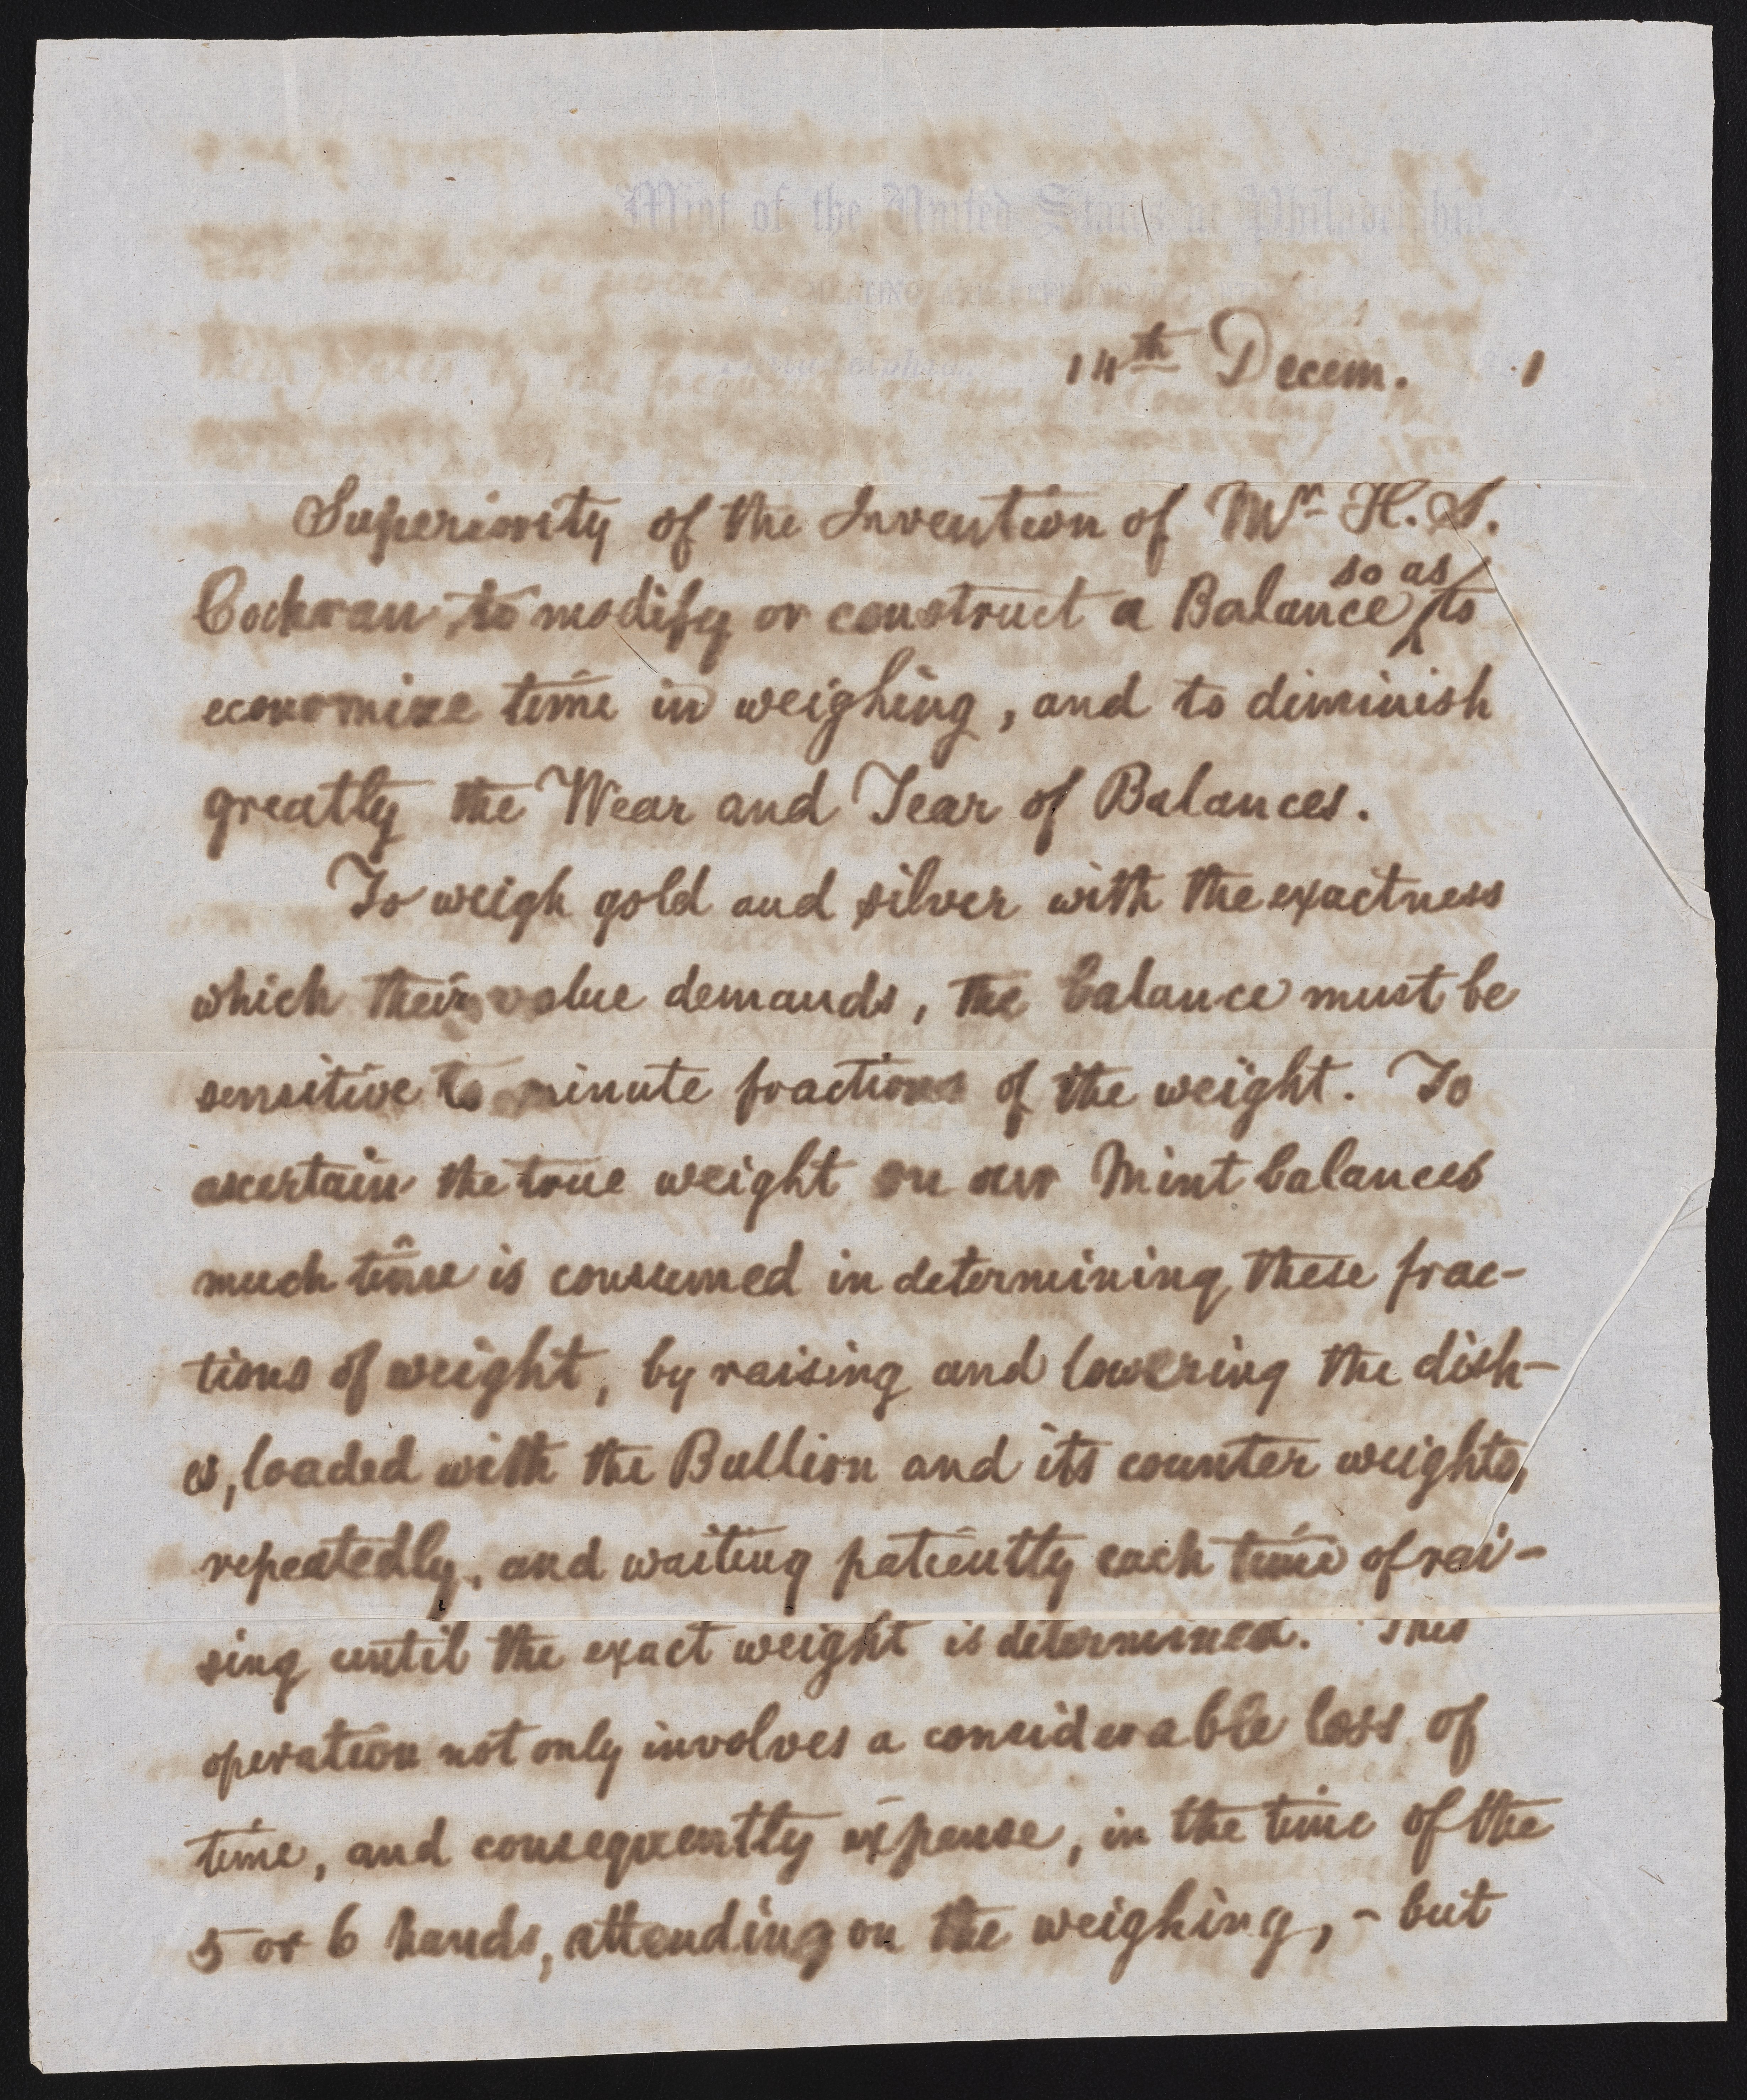 Mint of the United States at Philadelphia
14th Decem. 1
Superiority of the Invention of Mr H. S.
so as
Cochran to modify or construct a Balance to
economize time in weighing, and to diminish
greatly the Wear and Tear of Balances.
To weigh gold and silver with the exactness
which their value demands, the balance must be
sensitive to minute fractions of the weight. To
ascertain the true weight on our Mint balances
much time is consumed in determining these frac-
tions of weight, by raising and lowering the dish-
es, loaded with the Bullion and its counter weights,
repeatedly, and waiting patiently each time of rai-
sing until the exact weight is determined. This
operation not only involves a considerable loss of
time, and consequently expense, in the time of the
5 or 6 hands, attending on the weighing, - but